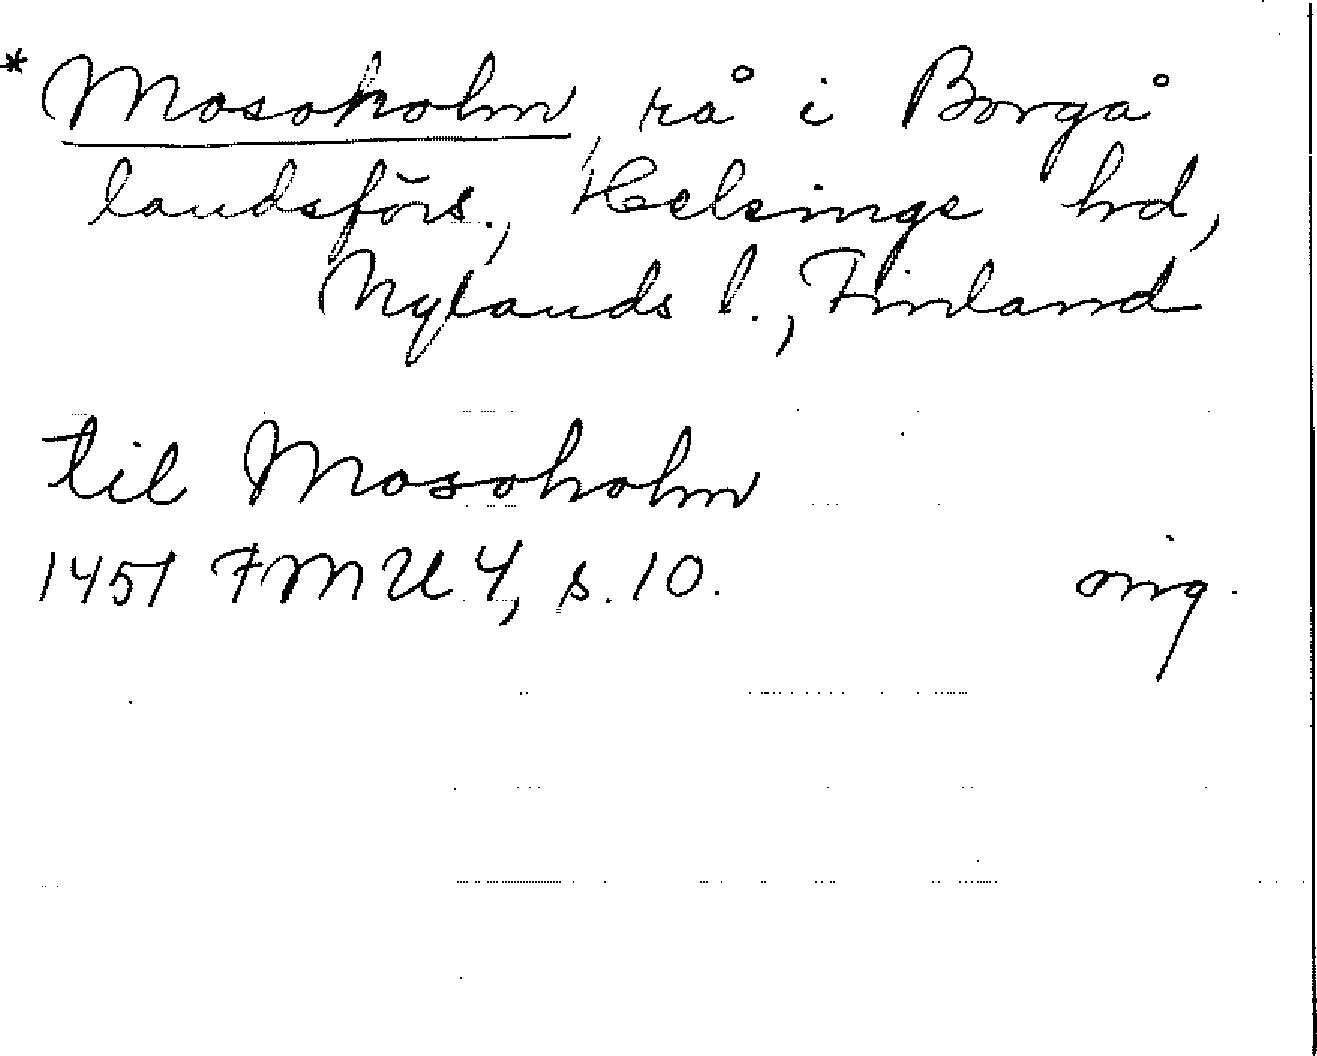 * Mosoholm, rå i Borgå
landsförs., Helsinge hd,
Nylands l., Finland
til Mosoholm
1451 FMU 4, s. 10.